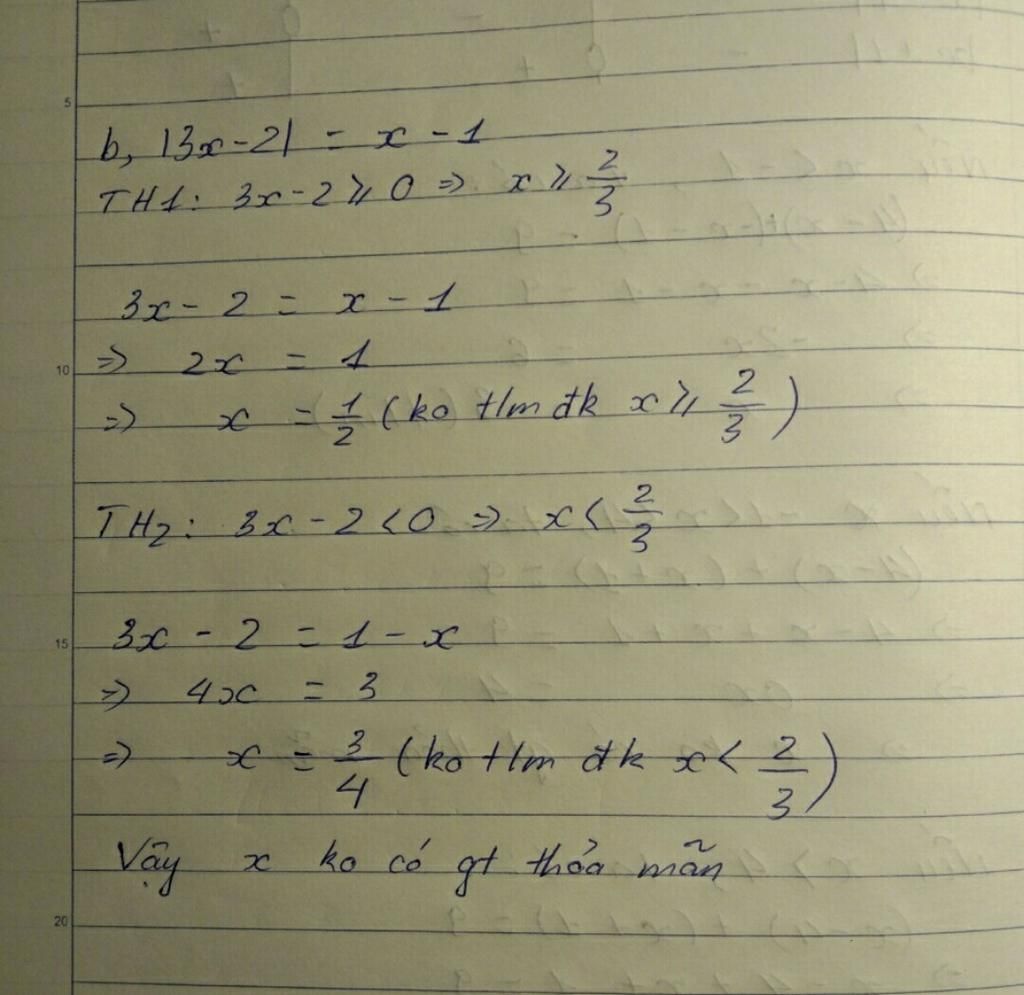 5
b, |3x-2| = x - 1
TH1: 3x-2 ⩾ 0 => x ⩾ 2/3
3x - 2 = x - 1
=> 2x = 1
10
=> x = 1/2 (ko t/m đk x ⩾ 2/3)
TH2: 3x - 2 < 0 => x < 2/3
15
3x - 2 = 1 - x
=> 4x = 3
=> x = 3/4 (ko t/m đk x < 2/3)
Vậy x ko có gt thỏa mãn
20